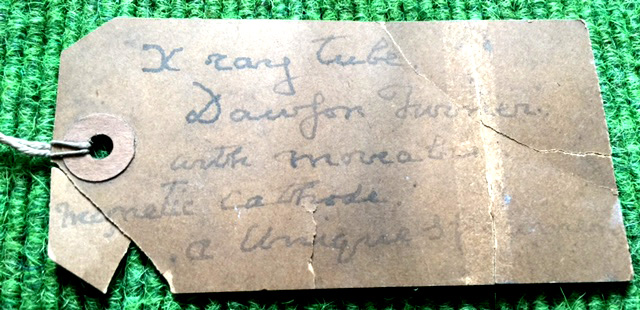 X ray tube
Dawson Turner.
with moveable
magnetic cathode.
a Unique specimen